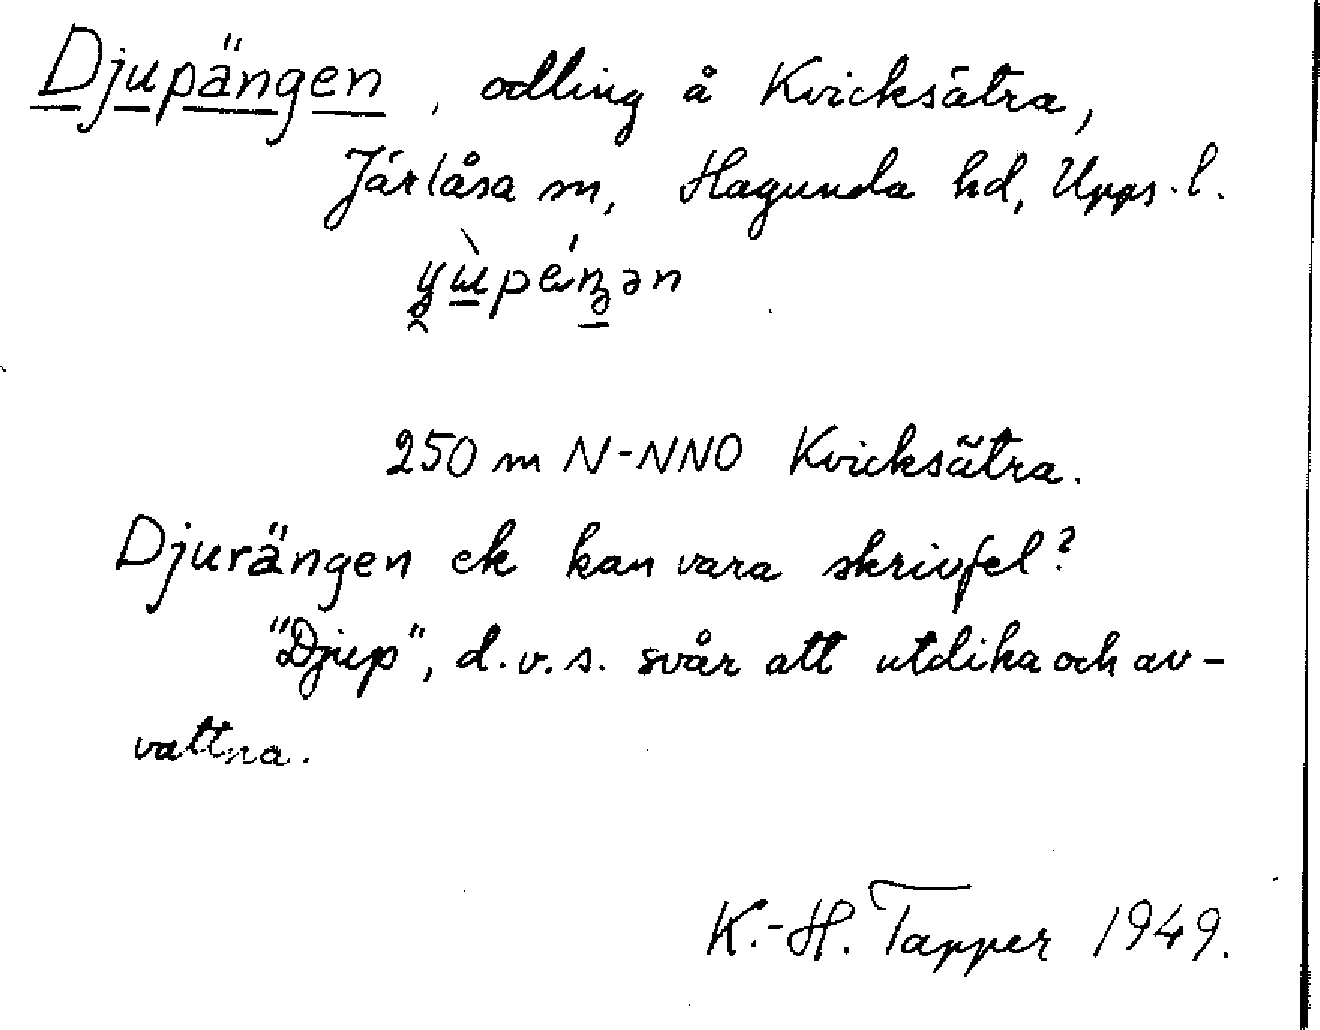 Djupängen, odling å Kvicksätra,
Järlåsa sn, Hagunda hd, Upps. l.
250 m N-NNO Kvicksätra.
Djurängen ek kan vara skrivfel?
"Djup", d.v.s. svår att utdika och av-
vattna.
K.-H. Tapper 1949.